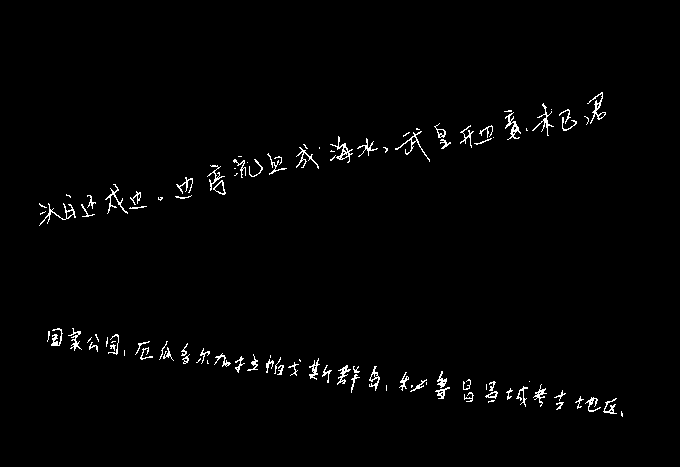 头白还戍边。边亭流血成海水,武皇开边意未已,君
国家公园,厄瓜多尔加拉帕戈斯群岛,秘鲁昌昌城考古地区,